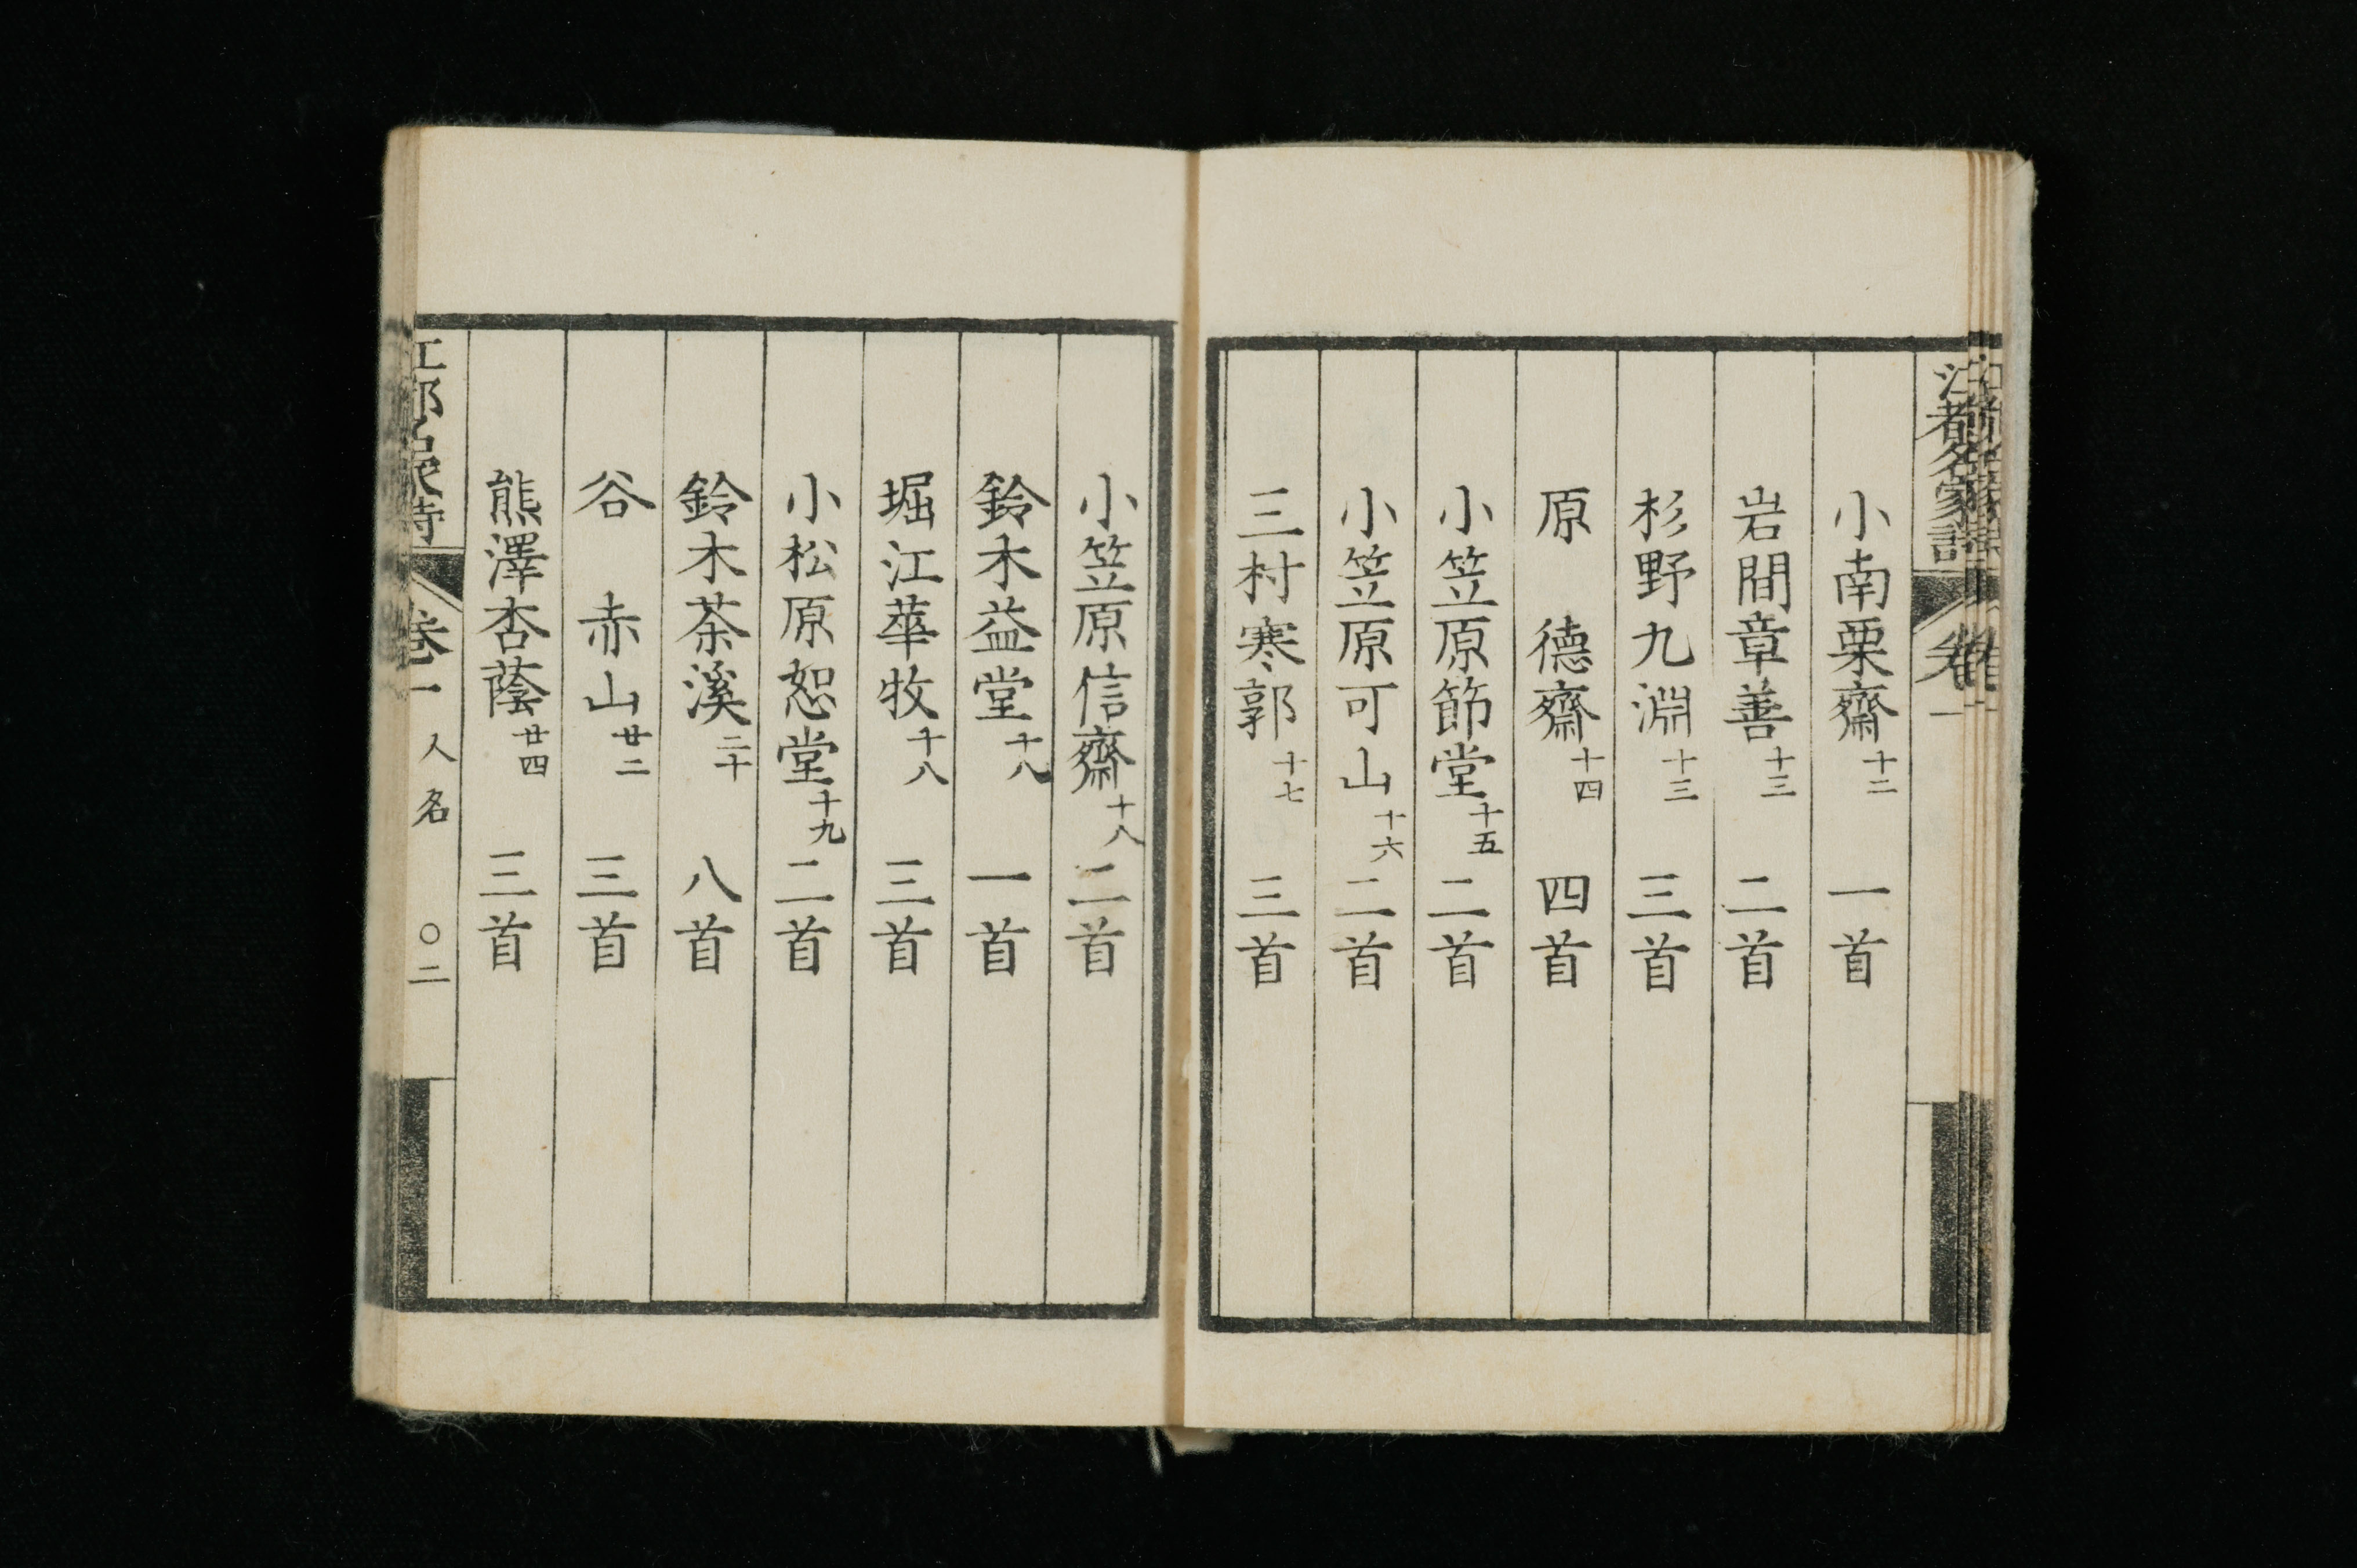 小南栗齋十二 一首
岩間章善十三 二首
杉野九淵十三 三首
原 德齋十四 四首
小笠原節堂十五 二首
小笠原可山十六 二首
三村寒郭十七 三首
小笠原信齋十八 二首
鈴木益堂十八 一首
堀江華牧十八 三首
小松原恕堂十九 二首
鈴木茶溪二十 八首
谷 赤山廿二 三首
熊澤杏蔭廿四 三首
卷一 人名 〇二